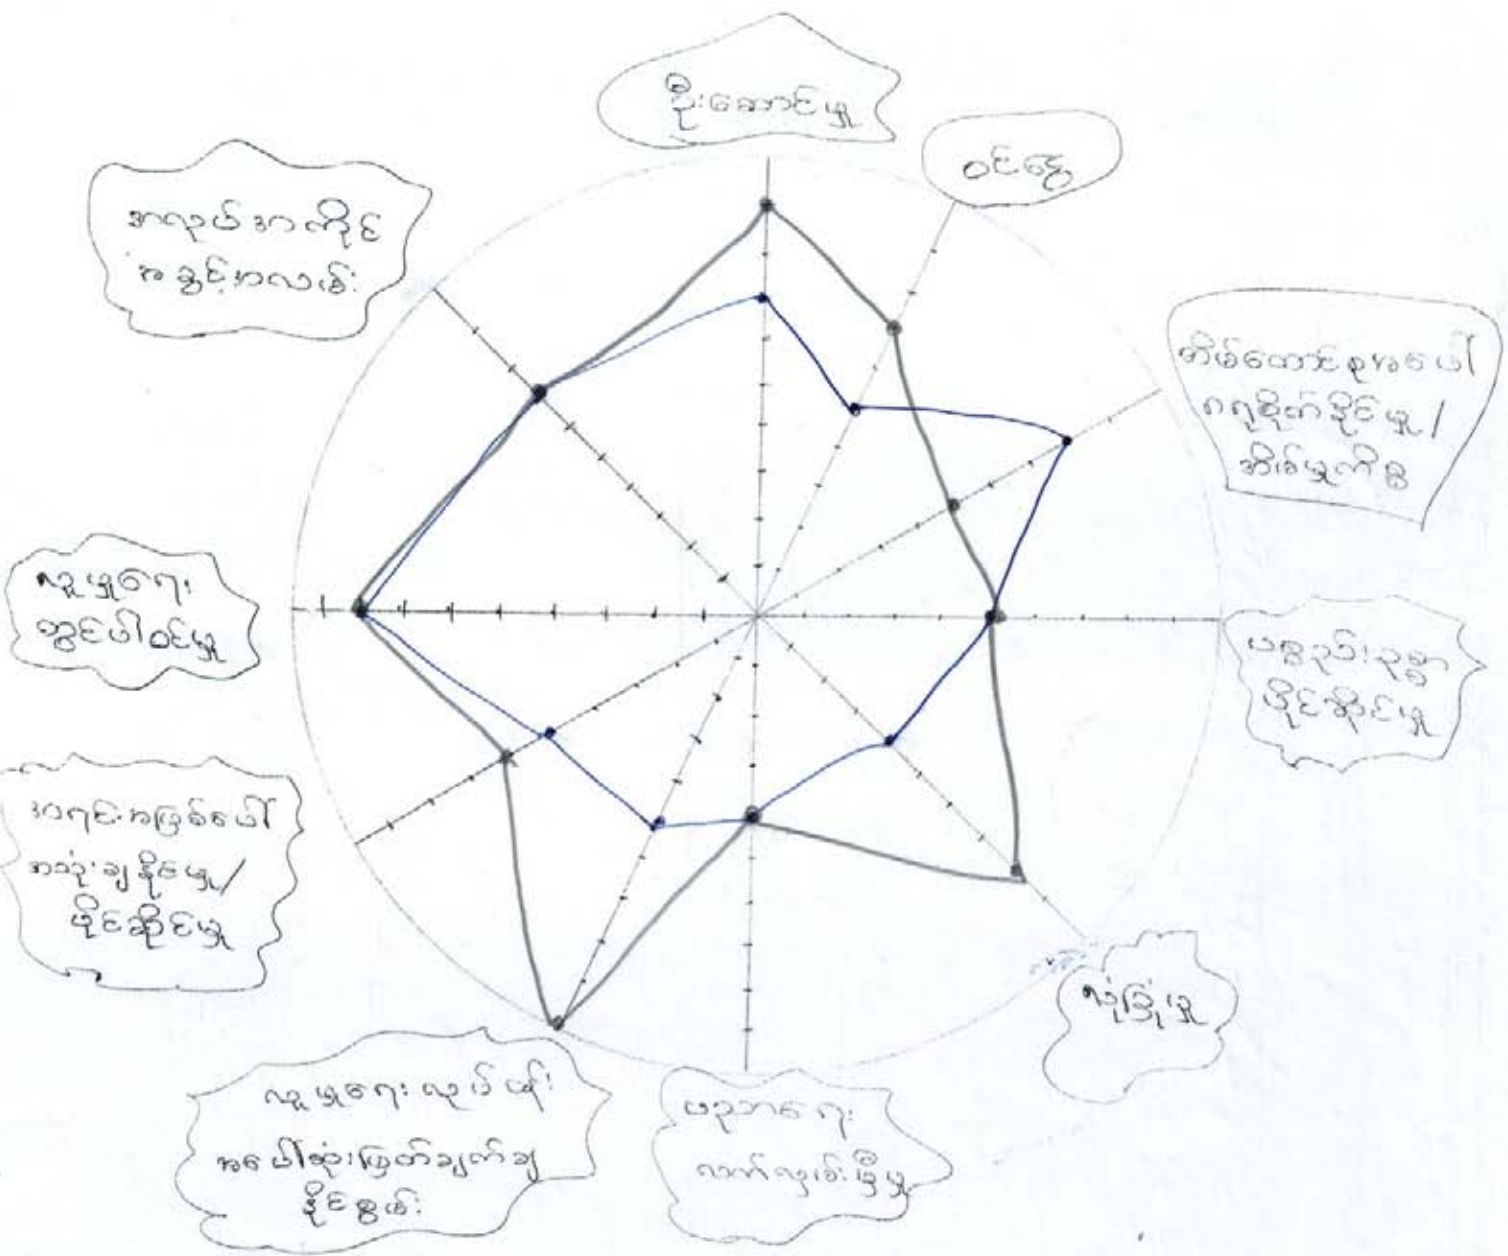 ဦးဆောင်မှု
ဝင်ငွေ
အိမ်ထောင်စုအပေါ်
ဂရုစိုက်နိုင်မှု /
အိမ်မှုကိစ္စ
ပစ္စည်းဥစ္စာ
ပိုင်ဆိုင်မှု
လုံခြုံမှု
ပညာရေး
လက်လှမ်းမှီမှု
လူမှုရေး လုပ်ငန်း
အပေါ်ဆုံးဖြတ်ချက်ချ
နိုင်စွမ်း
အရင်းအမြစ်ပေါ်
အသုံးချနိုင်မှု /
ပိုင်ဆိုင်မှု
လူမှုရေး
တွင်ပါဝင်မှု
အလုပ်အကိုင်
အခွင့်အလမ်း